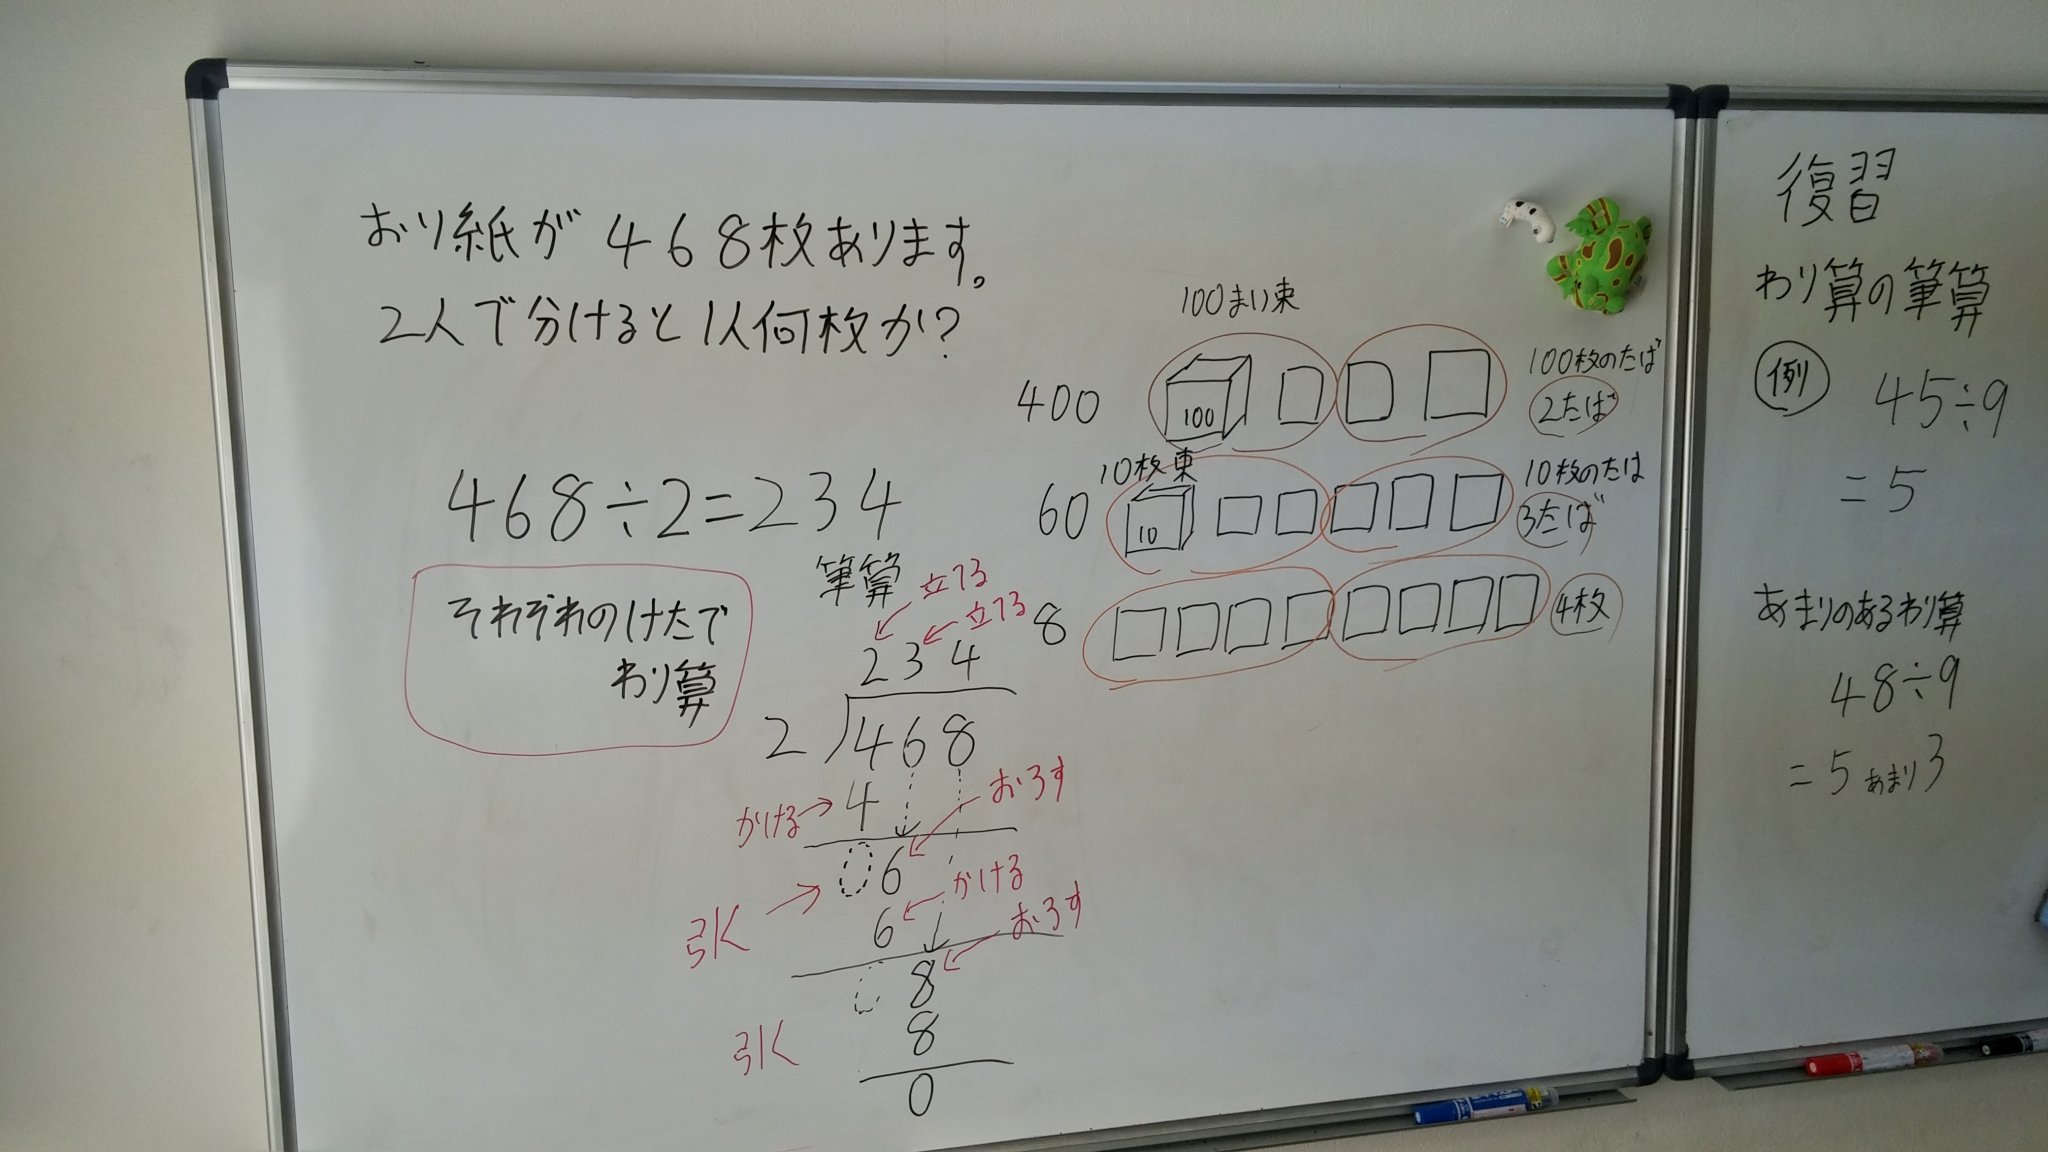 おり紙が468枚あります。
2人で分けると1人何枚か?
468÷2=234
それぞれのけたで
わり算
筆算
立てる
立てる
234
2)468
かける→4
おろす
06
引く
6
かける
おろす
08
引く
8
0
100まい束
400
100
100枚のたば
2たば
10枚束
60
10
10枚のたは
3たば
8
4枚
復習
わり算の筆算
例
45÷9
=5
あまりのあるわり算
48÷9
=5あまり3